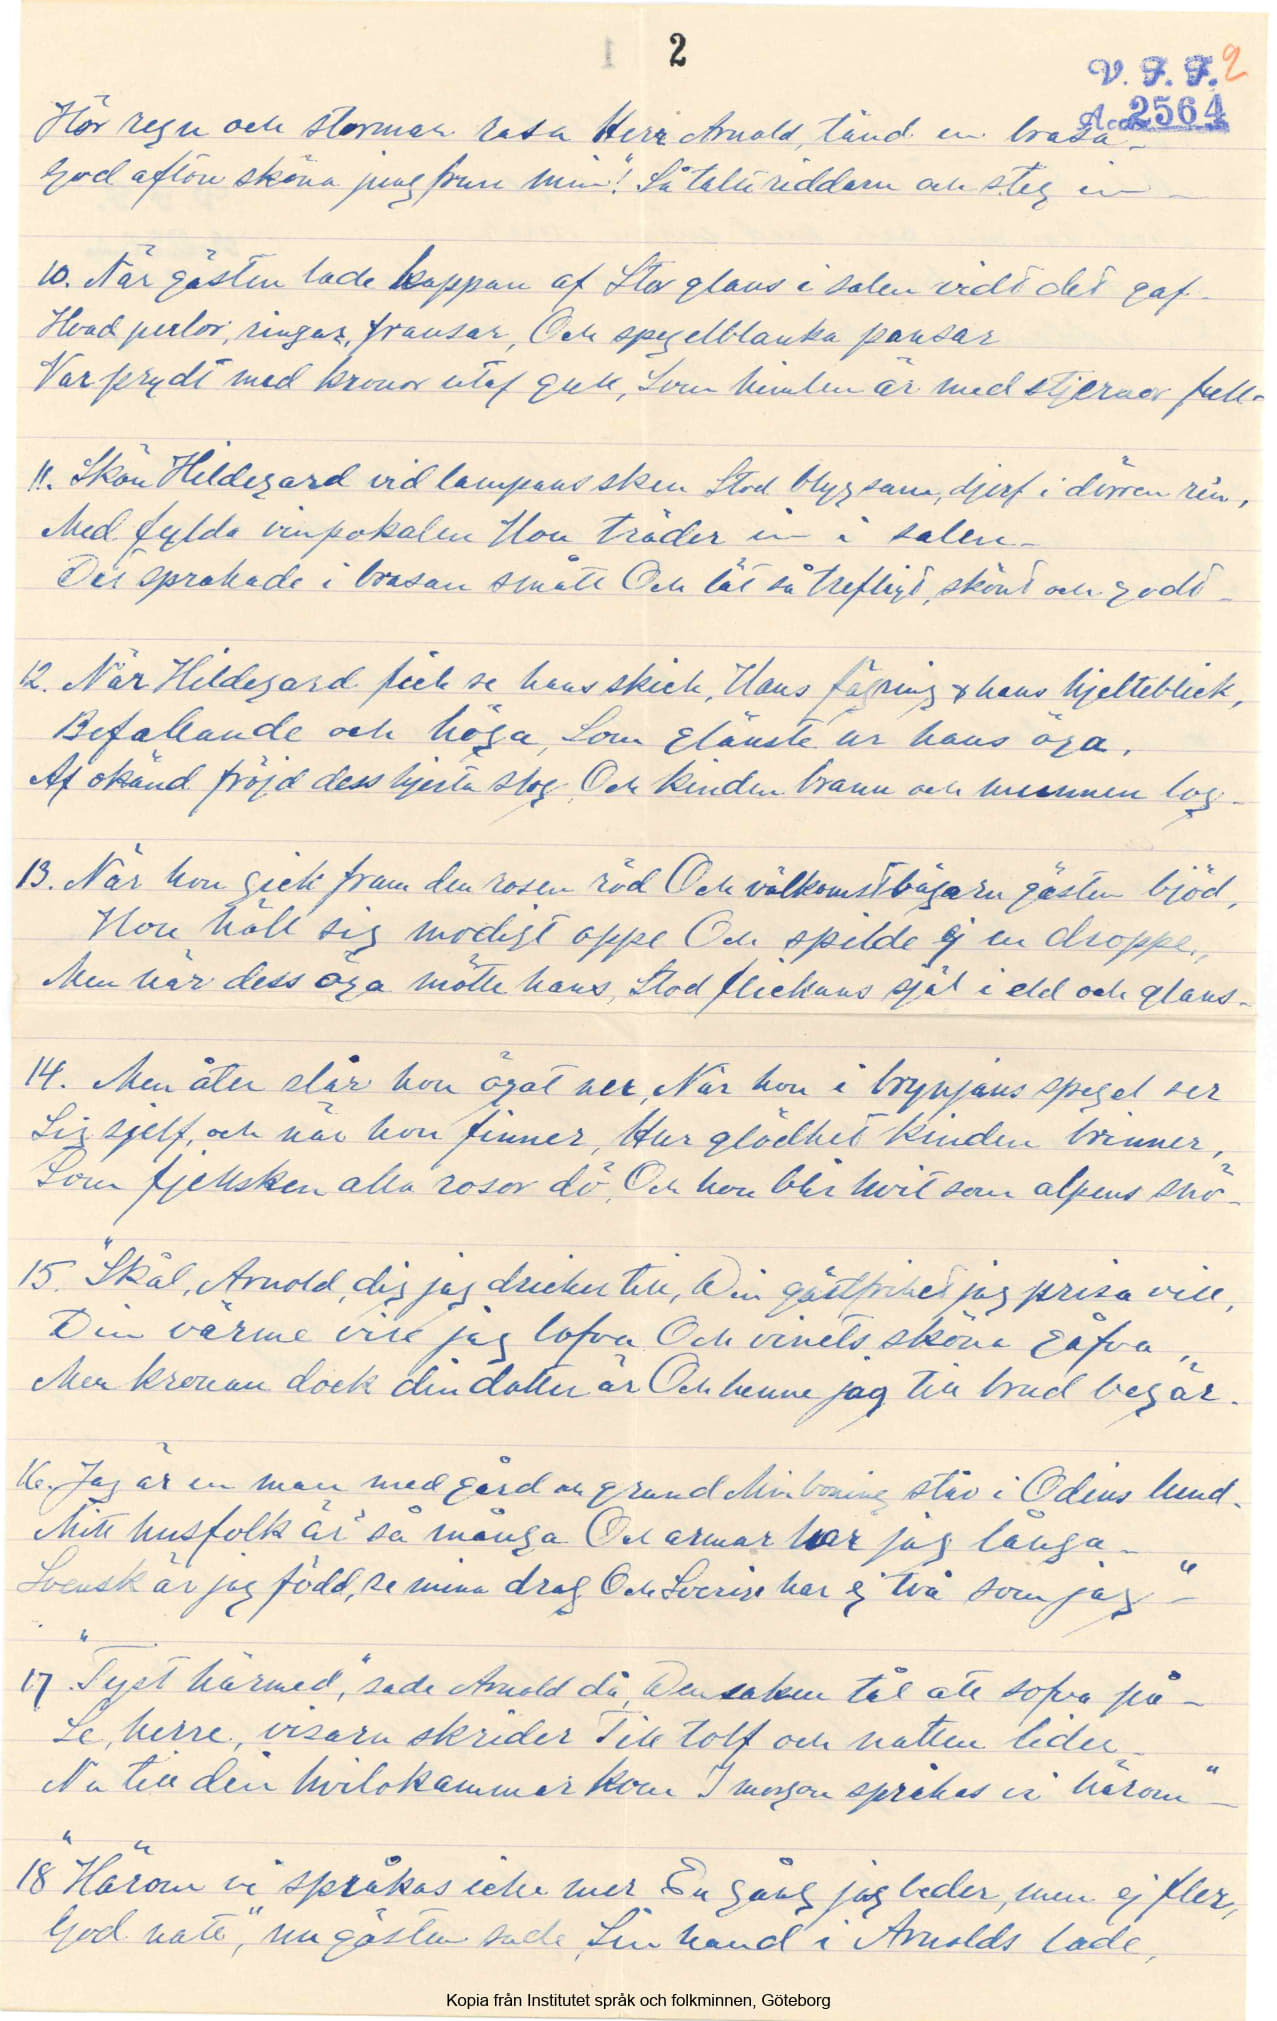 2
V. F. F. 2
Acc. 2564
Hör regn och stormar rasa Herr Arnold, tänd en brasa -
God afton sköna jungfrun min"! Så talte riddarn och steg in -
10. När gästen lade kappan af Stor glans i salen vidt det gaf -
Hvad perlor, ringar, fransar, Och spegelblanka pansar
Var prydt med kronor utaf gull, Som himlen är med stjernor full -
11. Skön Hildegard vid lampans sken Stod blygsam, djerf i dörren ren,
Med fylda vinpokalen Hon träder in i salen -
Det sprakade i brasan smått Och lät så trefligt, skönt och godt -
12. När Hildegard fick se hans skick, Hans fägring & hans hjelteblick,
Befallande och höga, Som glänste ur hans öga,
Af okänd fröjd dess hjerta slog, Och kinden brann och munnen log -
13. När hon gick fram den rosen röd Och välkomstbägarn gästen bjöd,
Hon höll sig modigt oppe Och spilde ej en droppe,
Men när dess öga mötte hans, Stod flickans själ i eld och glans -
14. Men åter slår hon ögat ner, När hon i brynjans spegel ser
Sig sjelf, och när hon finner, Hur glödhet kinden brinner,
Som fjellsken alla rosor dö, Och hon blir hvit som alpens snö -
15. "Skål, Arnold, dig jag dricker till, Din gästfrihet jag prisa vill,
Din värme vill jag lofva Och vinets sköna gåfva,
Men kronan dock din dotter är Och henne jag till brud begär.
16. Jag är en man med gård och grund Min boning står i Odins lund -
Mitt husfolk är så många Och armar har jag långa -
Svensk är jag född, se mina drag Och Sverige har ej två som jag" -
17. "Tyst härmed," sade Arnold då, Den saken tål att sofva på -
Se, herre, visarn skrider Till tolf och natten lider -
Nu till din hvilokammar kom I morgon språkas vi härom" -
18 "Härom vi språkas icke mer En gång jag beder, men ej fler,
God natt", nu gästen sade, Sin hand i Arnolds lade,
Kopia från Institutet språk och folkminnen, Göteborg